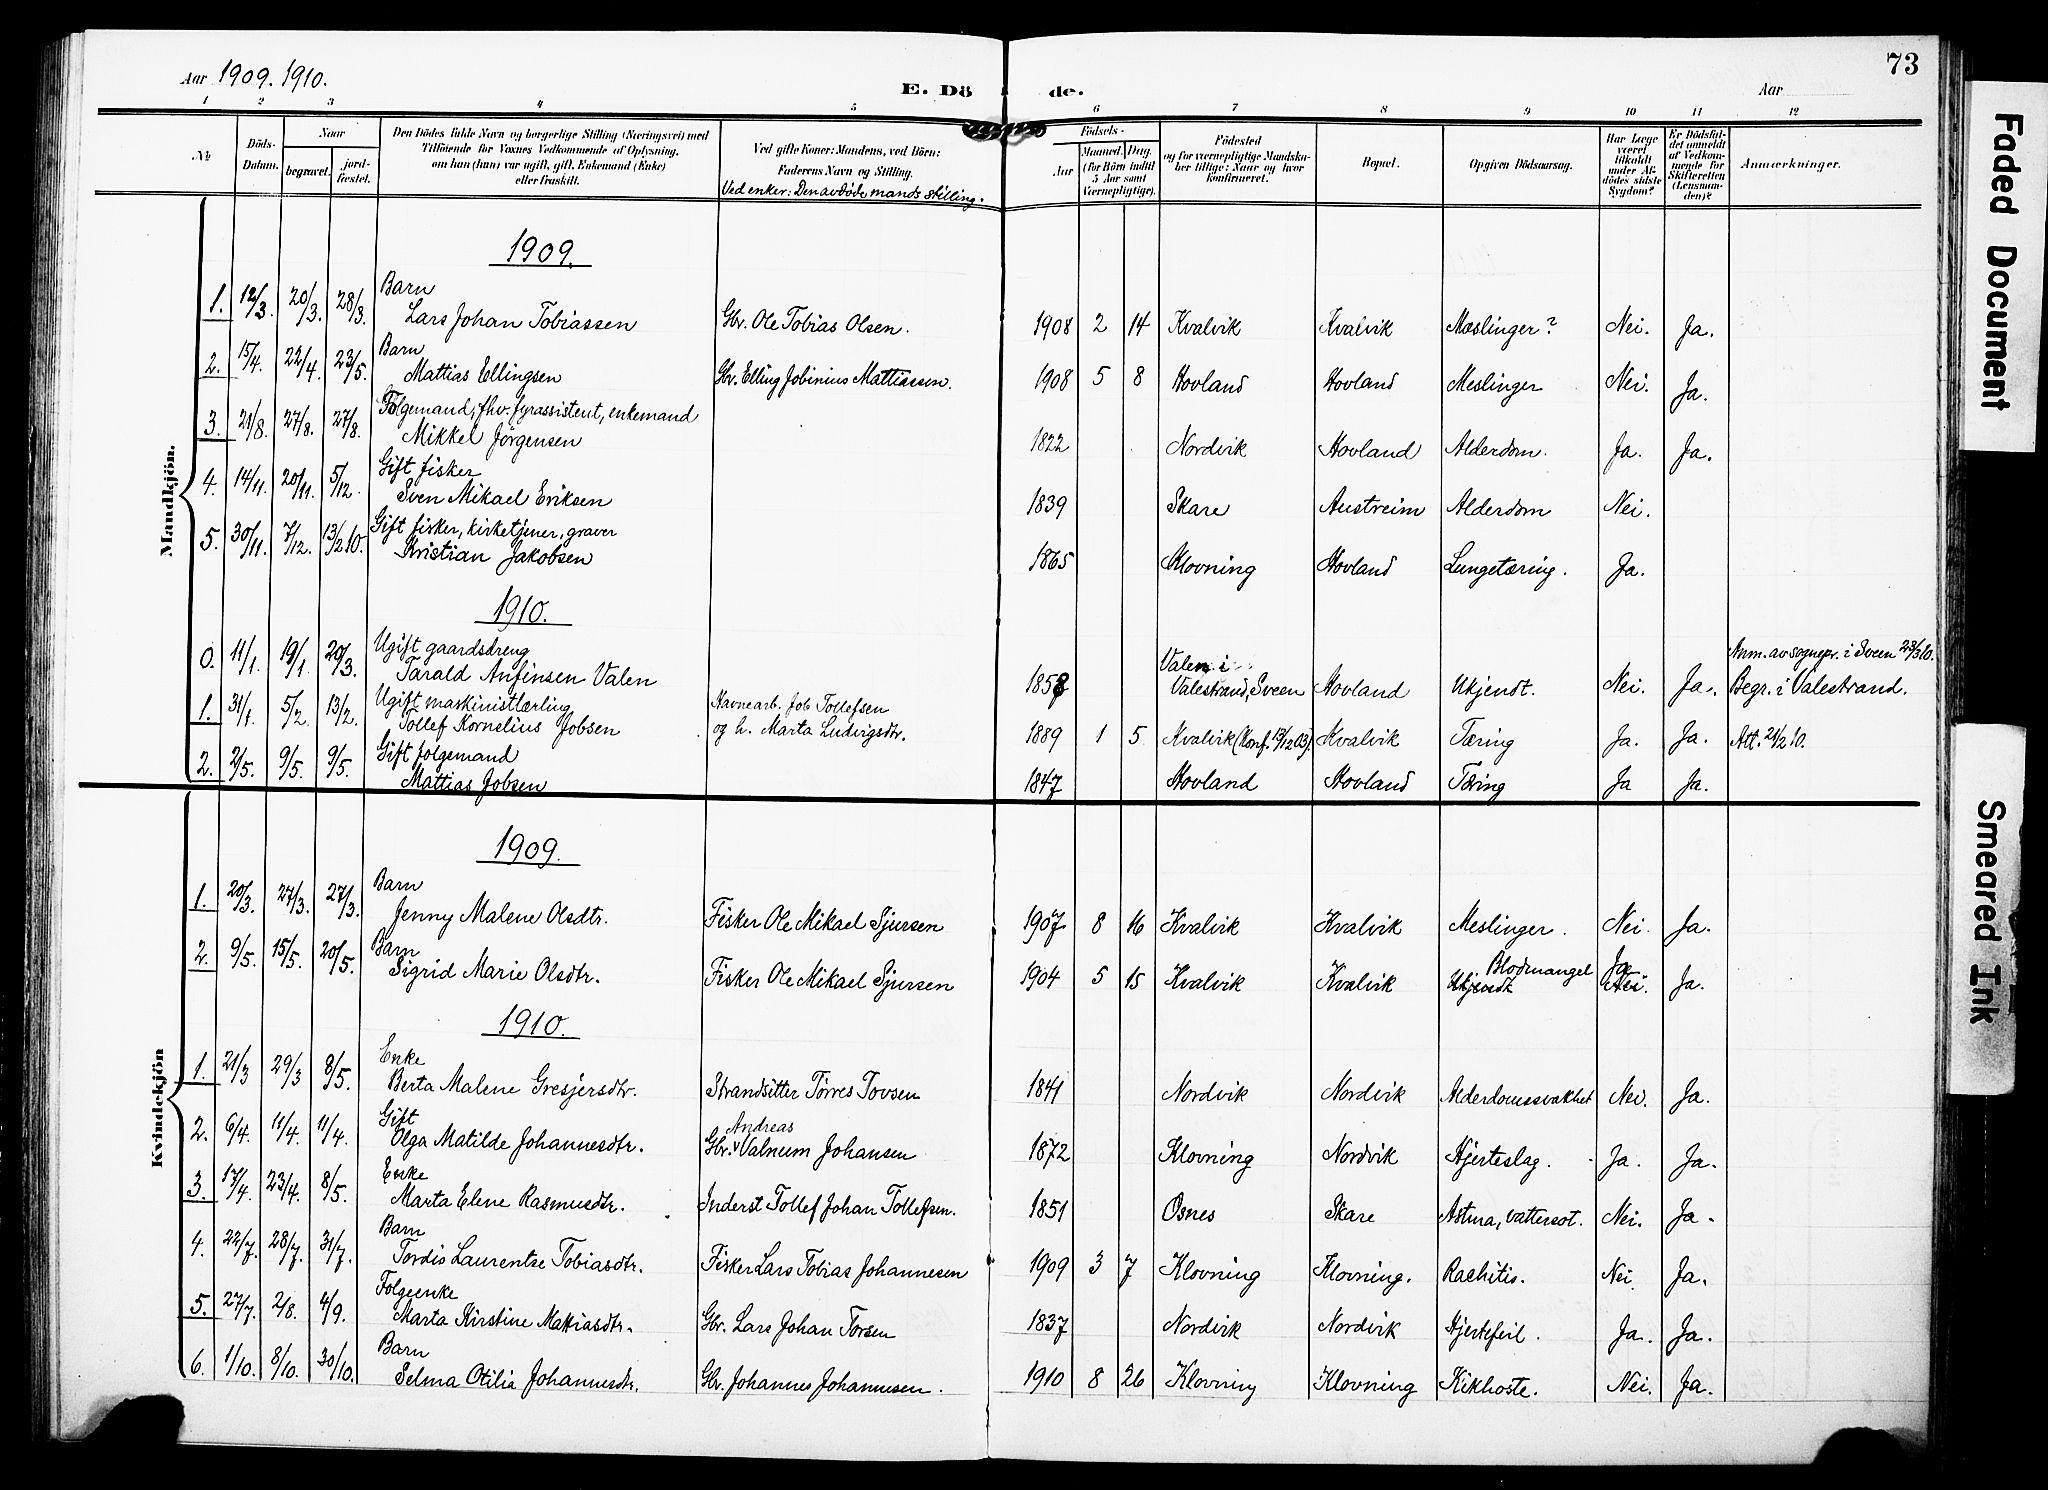 73
Aar 1909. 1910.
E. Döde.
Aar
1 2 3 4 5 6 7 8 9 10 11 12
№
Döds-Datum.
Naar
begravet.
jord-fæstet.
Den Dödes fulde Navn og borgerlige Stilling (Næringsvei) med
Tilföiende for Voxnes Vedkommende af Oplysning,
om han (hun) var ugift, gift, Enkemand (Enke)
eller fraskilt.
Ved gifte Koner: Mandens, ved Börn:
Faderens Navn og Stilling.
Ved enker: Den avdöde mands stilling.
Födsels-
Aar
Maaned. Dag.
(for Börn indtil
5 Aar samt
Værnepligtige).
Födested
og for værnepligtige Mandska-
ber tillige: Naar og hvor
konfirmeret.
Bopæl.
Opgiven Dödsaarsag.
Har Læge
været
tilkaldt
under Af-
dödes sidste
Sygdom?
Er Dödsfal-
det anmeldt
af Vedkom-
mende for
Skifteretten
(Lensman-
den)?
Anmærkninger.
Mandkjön.
1909.
1. 12/3. 20/3. 28/3. Barn
Lars Johan Tobiassen Gbr. Ole Tobias Olsen. 1908 2 14 Kvalvik Kvalvik Mæslinger? Nei. Ja.
2. 15/4. 22/4. 23/5. Barn
Mattias Ellingsen Gbr. Elling Jobinius Mattiassen. 1908 5 8 Hovland Hovland Meslinger Nei. Ja.
3. 21/8. 27/8. 27/8. Folgemand, fhv. fyrassistent, enkemand
Mikkel Jörgensen 1822 Nordvik Hovland Alderdom. Ja. Ja.
4. 14/11. 20/11. 5/12. Gift fisker
Sven Mikael Eriksen 1839 Skare Austreim Alderdom Nei.
5. 30/11. 7/12. 13/2 10. Gift fisker, kirketjener, graver
Kristian Jakobsen 1865 Klovning Hovland Lungetæring. Ja.
1910.
0. 11/1. 19/1. 20/3. Ugift gaardsdreng
Tarald Anfinsen Valen 1858 Valen i
Valestrand, Sveen Hovland Ukjendt. Nei. Ja. Anm. av sognepr. i Sveen 23/3 10.
Begr. i Valestrand.
1. 31/1. 5/2. 13/2. Ugift maskinistlærling
Tollef Kornelius Jobsen Havnearb. Job Tollefsen
og h. Marta Ludvigsdtr. 1889 1 5 Kvalvik (Konf. 13/12 03) Kvalvik Tæring Ja. Ja. Att. 21/2 10.
2. 2/5. 9/5. 9/5. Gift folgemand
Mattias Jobsen 1847 Hovland Hovland Tæring Ja Ja.
Kvindekjön
1909.
1. 20/3. 27/3. 27/3. Barn
Jenny Malene Olsdtr. Fisker Ole Mikael Sjursen 1907 8 16 Kvalvik Kvalvik Meslinger. Nei. Ja.
2. 9/5. 15/5. 20/5. Barn
Sigrid Marie Olsdtr. Fisker Ole Mikael Sjursen 1904 5 15 Kvalvik Kvalvik Blodmangel
Ukjendt Ja
Nei. Ja.
1910.
1. 21/3 29/3 8/5. Enke
Berta Malene Gresjersdtr. Strandsitter Tørres Tovsen 1841 Nordvik Nordvik Alderdomssvakhet Nei. Ja.
2. 6/4. 11/4. 11/4. Gift
Olga Matilde Johannesdtr. Gbr. Andreas Valnum Johansen 1872 Klovning Nordvik Hjerteslag. Ja. Ja.
3. 17/4. 23/4. 8/5. Enke
Marta Elene Rasmusdtr. Inderst Tollef Johan Tollefsen. 1851 Osnes Skare Astma, vattersot. Nei. Ja.
4. 22/7. 28/7. 31/7. Barn
Tordis Laurentze Tobiasdtr. Fisker Lars Tobias Johannesen 1909 3 7 Klovning Klovning. Rachitis. Nei. Ja.
5. 27/7. 2/8. 4/9. Folgeenke
Marta Kirstine Mattiasdtr. Gbr. Lars Johan Torsen 1837 Nordvik Nordvik Hjertefeil. Ja. Ja.
6. 1/10. 8/10. 30/10. Barn
Selma Otilia Johannesdtr. Gbr. Johannes Johannesen. 1910 8 26 Klovning Klovning Kikhoste. Nei. Ja.
Faded Document
Smeared Ink